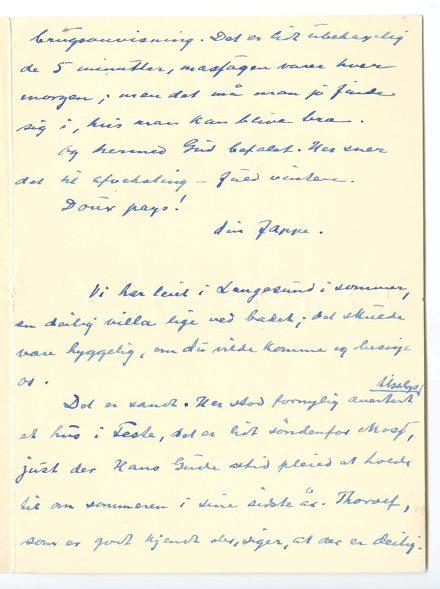 brugsanvisning. Det er lidt ubehagelig
de 5 minutter, massagen varer hver
morgen; men det må man jo finde
sig i, hvis man kan blive bra.
Og hermed Gud befalet. Her sner
det til afveksling – fuld vinter.
Doux pays!
din Jappe.
Vi har leiet i Langesund i sommer,
en deilig villa lige ved badet; det skulde
være hyggelig, om du vilde komme og besøge
os.
tilsalgs
Det er sandt. Her stod fornylig averteret
et hus i Feste, det er lidt söndenfor Moss,
just der Hans Gude altid pleied at holde
til om sommeren i sine sidste år. Thorolf,
som er godt kjendt der, siger, at der er deilig.